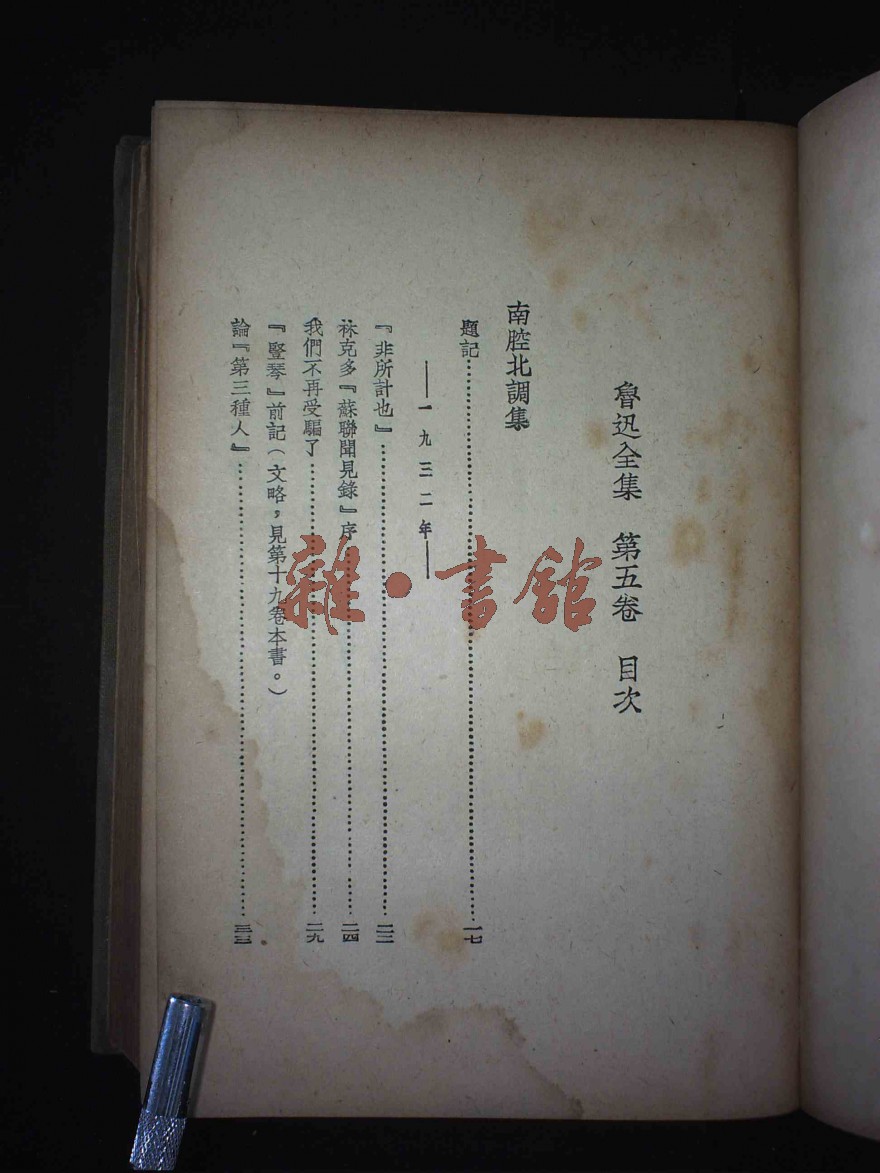 魯迅全集　第五卷　目次
南腔北調集
題記……一七
——一九三二年——
『非所計也』……二二
林克多『蘇聯聞見錄』序……二四
我們不再受騙了……二九
『豎琴』前記(文略，見第十九卷本書。)
論『第三種人』……三三
雜·書館